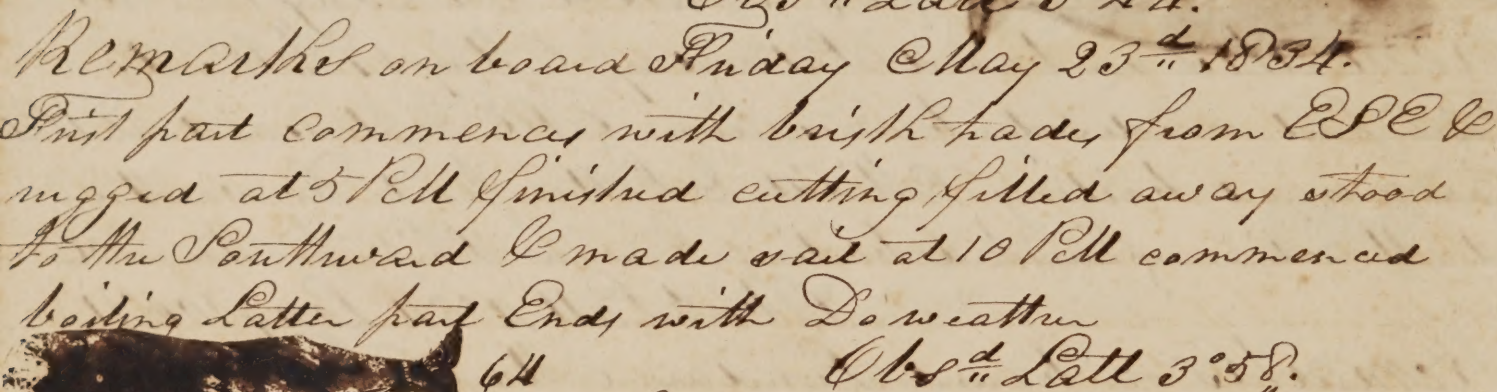 Obsd Latt 3 44.
Remarks on board Friday May 23d 1834.
First part commences with brisk trades from ESE &
rugged at 5 PM finished cutting filled away stood
to the Southward & made sail at 10 PM commenced
boiling Latter part Ends with Do weather
64 Obsd Latt 3°58.